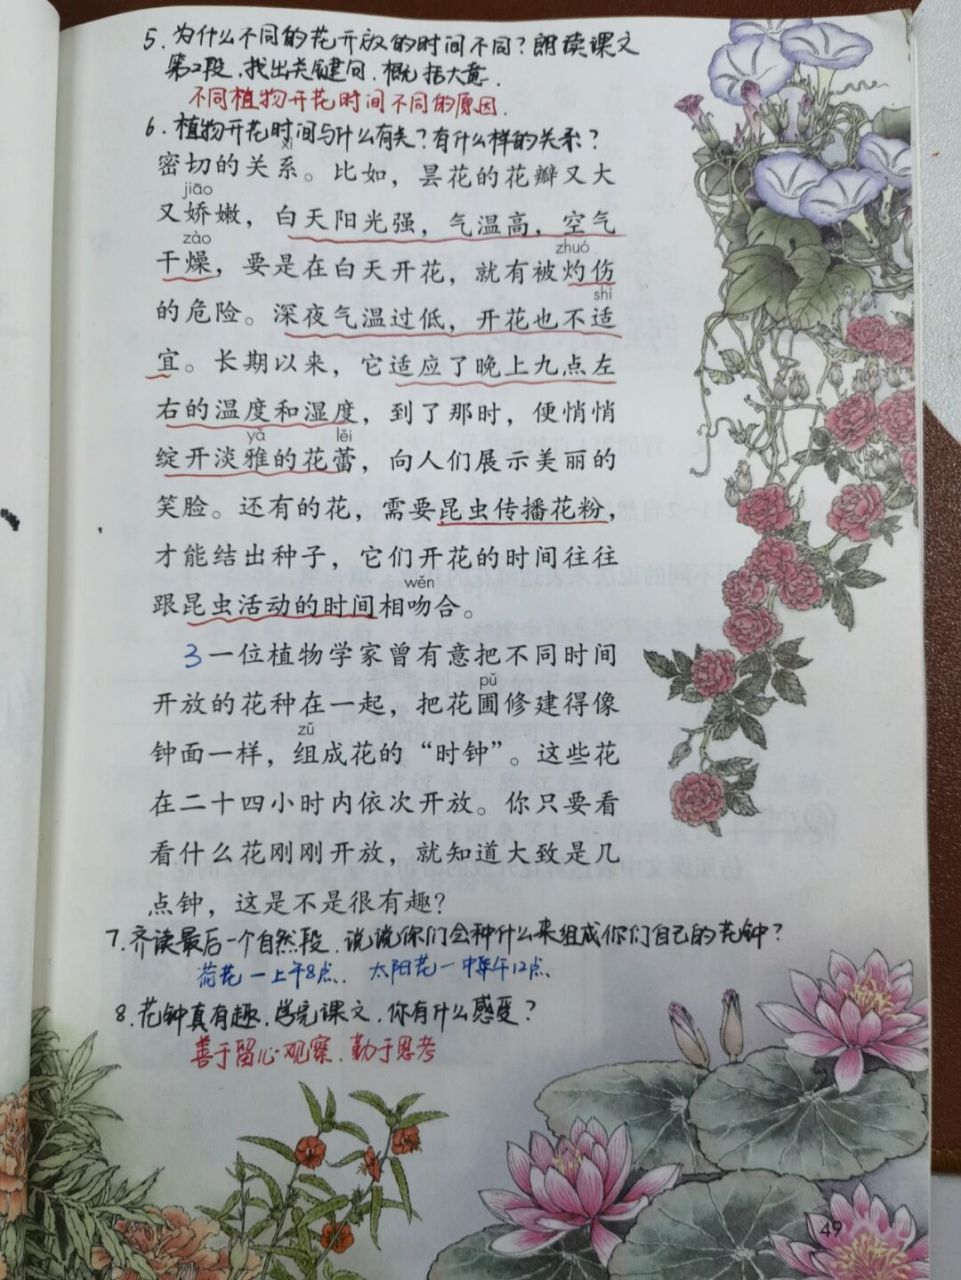 5.为什么不同的花开放的时间不同？朗读课文
第2段，找出关键句，概括大意.
不同植物开花时间不同的原因.
6.植物开花时间与什么有关？有什么样的关系？
xi
密切的关系。比如，昙花的花瓣又大
jiāo
又娇嫩，白天阳光强，气温高，空气
zào zhuó
干燥，要是在白天开花，就有被灼伤
shì
的危险。深夜气温过低，开花也不适
宜。长期以来，它适应了晚上九点左
右的温度和湿度，到了那时，便悄悄
yǎ lěi
绽开淡雅的花蕾，向人们展示美丽的
笑脸。还有的花，需要昆虫传播花粉，
才能结出种子，它们开花的时间往往
wěn
跟昆虫活动的时间相吻合。
3一位植物学家曾有意把不同时间
pǔ
开放的花种在一起，把花圃修建得像
zǔ
钟面一样，组成花的“时钟”。这些花
在二十四小时内依次开放。你只要看
看什么花刚刚开放，就知道大致是几
点钟，这是不是很有趣？
7.齐读最后一个自然段，说说你们会种什么来组成你们自己的花钟？
荷花—上午8点、太阳花—中午12点、
8.花钟真有趣，学完课文，你有什么感受？
善于留心观察，勤于思考
49